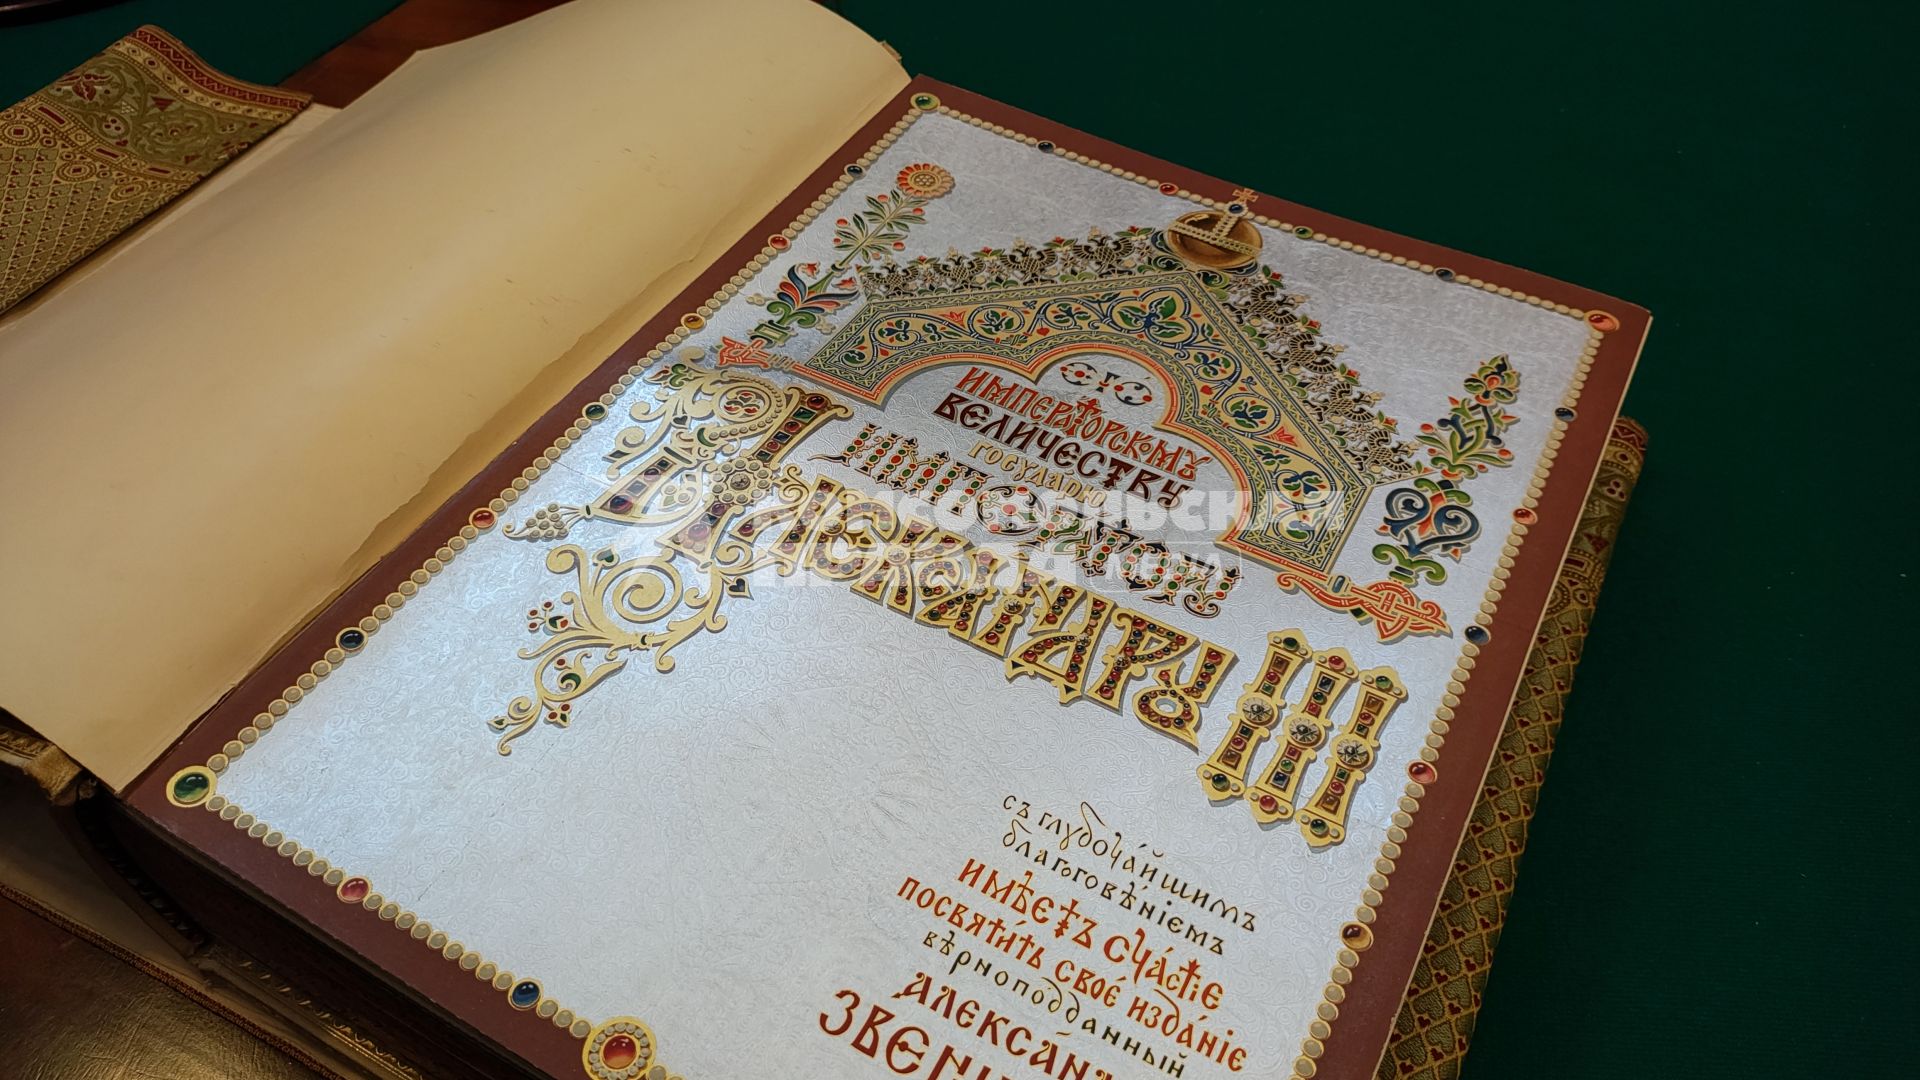 ЕГО
ИМПЕРАТОРСКОМУ
ВЕЛИЧЕСТВУ
ГОСУДАРЮ
ИМПЕРАТОРУ
АЛЕКСАНДРУ III
съ глубочайшимъ
благоговѣніемъ
имѣетъ счастіе
посвятить своё изданіе
вѣрноподданный
АЛЕКСАН
ЗВЕНИ
КОМСОМОЛЬСКАЯ
ПРАВДА